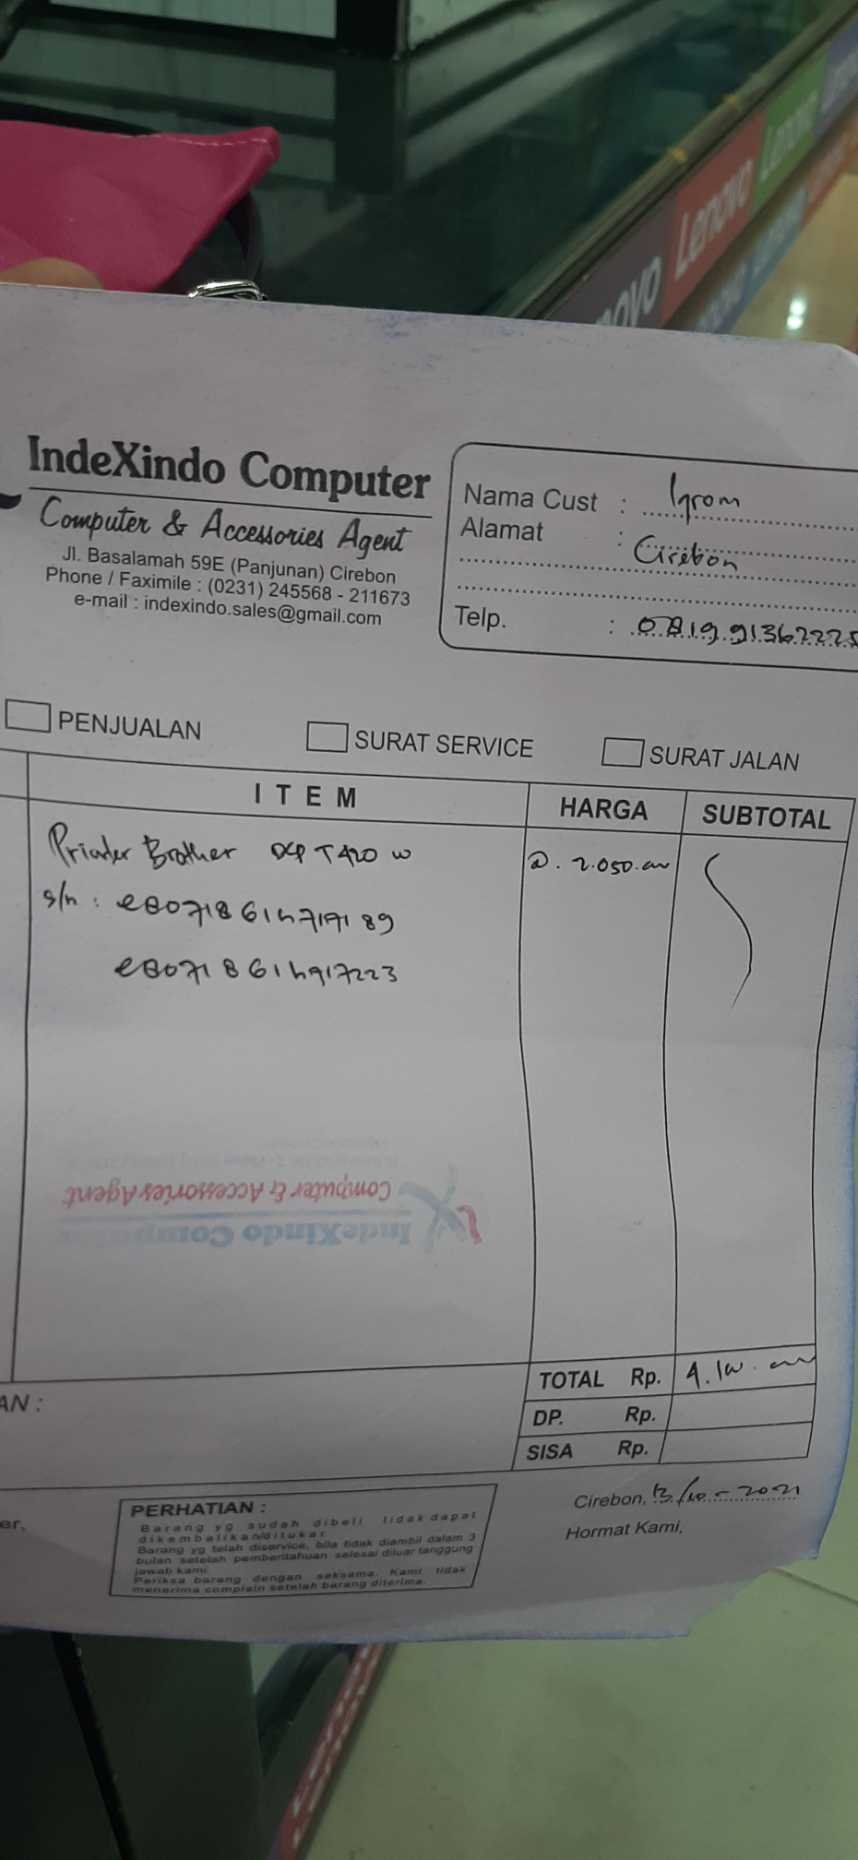 Lenovo
Lenovo
Lenovo
IndeXindo Computer
Computer & Accessories Agent
Jl. Basalamah 59E (Panjunan) Cirebon
Phone / Faximile : (0231) 245568 - 211673
e-mail : indexindo.sales@gmail.com
Nama Cust :
Alamat : Cirebon
Telp. :
PENJUALAN
SURAT SERVICE
SURAT JALAN
ITEM HARGA SUBTOTAL
Printer Brother DCP T420 W @. 2.050.000
s/n :
TOTAL Rp. 4.100.000
DP. Rp.
SISA Rp.
Computer & Accessories Agent
IndeXindo Computer
AN :
er,
PERHATIAN :
Barang yg sudah dibeli tidak dapat
dikembalikan/ditukar
Barang yg telah diservice, bila tidak diambil dalam 3
bulan setelah pemberitahuan selesai diluar tanggung
jawab kami.
Periksa barang dengan seksama. Kami tidak
menerima complain setelah barang diterima.
Cirebon, 13/10 - 2021
Hormat Kami,